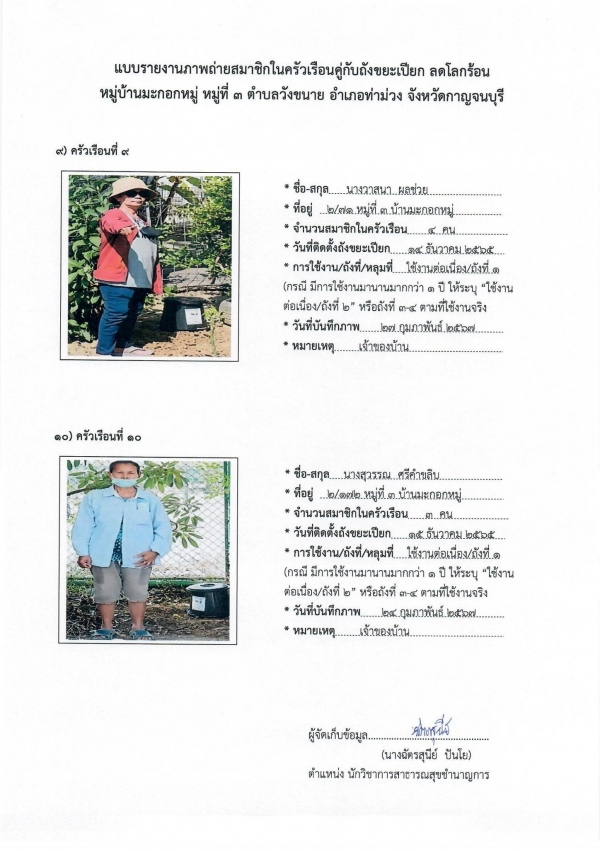 แบบรายงานภาพถ่ายสมาชิกในครัวเรือนคู่กับถังขยะเปียก ลดโลกร้อน
หมู่บ้านมะกอกหมู่ หมู่ที่ ๓ ตำบลวังขนาย อำเภอท่าม่วง จังหวัดกาญจนบุรี
๙) ครัวเรือนที่ ๙
* ชื่อ-สกุล......นางวาสนา ผลช่วย
* ที่อยู่ ๒/๗๑ หมู่ที่ ๓ บ้านมะกอกหมู่
* จำนวนสมาชิกในครัวเรือน ๔ คน
* วันที่ติดตั้งถังขยะเปียก ๑๔ ธันวาคม ๒๕๖๕
* การใช้งาน/ถังที่/หลุมที่ ใช้งานต่อเนื่อง/ถังที่ ๑
(กรณี มีการใช้งานมานานมากกว่า ๑ ปี ให้ระบุ “ใช้งาน
ต่อเนื่อง/ถังที่ ๒” หรือถังที่ ๓-๔ ตามที่ใช้งานจริง
* วันที่บันทึกภาพ ๒๗ กุมภาพันธ์ ๒๕๖๗
* หมายเหตุ เจ้าของบ้าน
๑๐) ครัวเรือนที่ ๑๐
* ชื่อ-สกุล นางสุวรรณ ศรีคำขลิบ
* ที่อยู่ ๒/๑๗๒ หมู่ที่ ๓ บ้านมะกอกหมู่
* จำนวนสมาชิกในครัวเรือน ๓ คน
* วันที่ติดตั้งถังขยะเปียก ๑๕ ธันวาคม ๒๕๖๕
* การใช้งาน/ถังที่/หลุมที่ ใช้งานต่อเนื่อง/ถังที่ ๑
(กรณี มีการใช้งานมานานมากกว่า ๑ ปี ให้ระบุ “ใช้งาน
ต่อเนื่อง/ถังที่ ๒” หรือถังที่ ๓-๔ ตามที่ใช้งานจริง
* วันที่บันทึกภาพ ๒๔ กุมภาพันธ์ ๒๕๖๗
* หมายเหตุ เจ้าของบ้าน
ผู้จัดเก็บข้อมูล
(นางฉัตรสุนีย์ ปันโย)
ตำแหน่ง นักวิชาการสาธารณสุขชำนาญการ